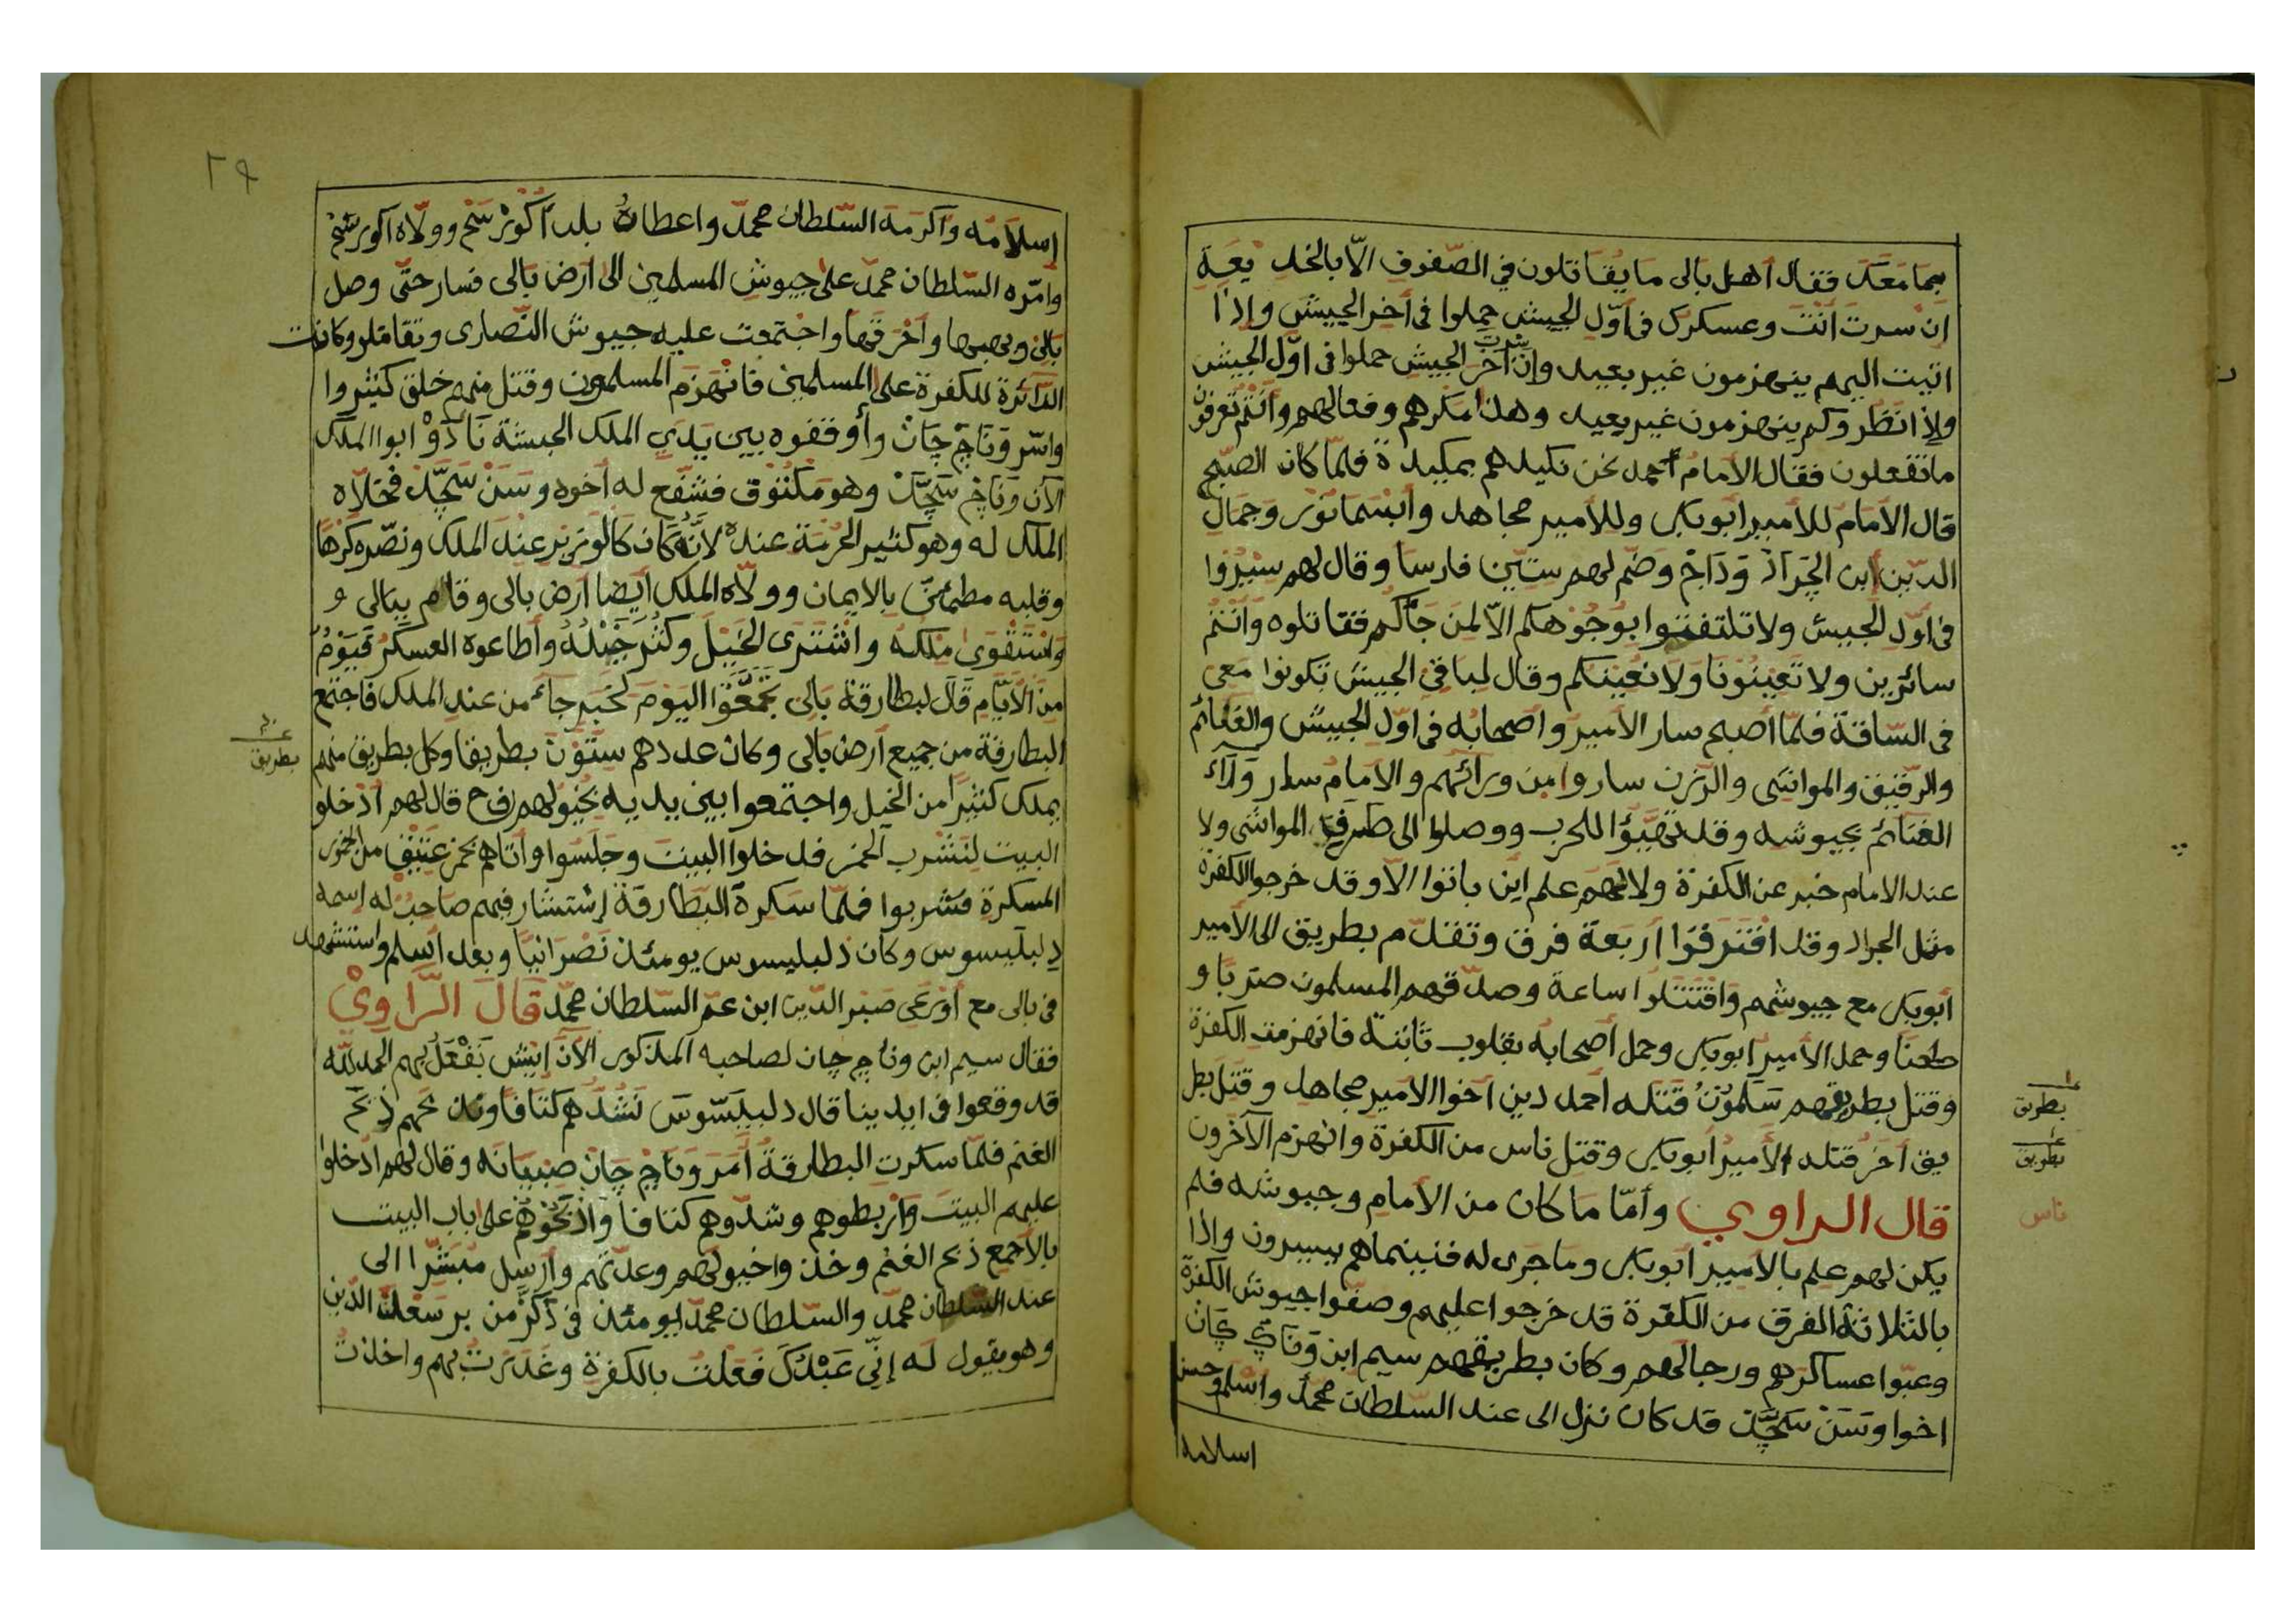 بما معك فقال أهل بالى ما يقاتلون في الصفوف الّا بالخديعة
ان سرت أنت وعسكرك في أوّل الجيش حملوا في أخر الجيش وإذا
اتيت اليهم ينهزمون غير بعيد وإن سرت آخر الجيش حملوا في اوّل الجيش
وإذا نظروكم ينهزمون غير بعيد وهذا مكرهم وفعالهم وأنتم تعرفون
ما تفعلون فقال الامام أحمد نحن نكيدهم بمكيدة فلمّا كان الصبح
قال الامام للأمير أبو بكر وللأمير مجاهد وأبسما نور وجمال
الدين ابن الجراد وداخ وضم لهم ستّين فارسا وقال لهم سيروا
في اوّل الجيش ولا تلتفتوا بوجوهكم الّا لمن جآكم فقاتلوه وأنتم
سائرين ولا تعينونا ولا نعينكم وقال لباقي الجيش تكونوا معي
في السّاقة فلمّا أصبح سار الأمير وأصحابه في اوّل الجيش والغنائم
والرقيق والمواشي والرزن ساروا من ورائهم والامام سار ورآء
الغنائم بجيوشه وقد تهيّؤا للحرب ووصلوا الى طرف المواشى ولا
عند الامام خبر عن الكفرة ولا لهم علم اين باتوا الّا وقد خرجوا الكفرة
مثل الجراد وقد افترقوا أربعة فرق وتقدّم بطريق الى الأمير
أبو بكر مع جيوشهم واقتتلوا ساعة وصدّقهم المسلمون ضربا و
طعنا وحمل الأمير ابو بكر وحمل أصحابه بقلوب ثابتة فانهزمت الكفرة
وقتل بطريقهم سلمون قتله أحمد دين اخوا الامير مجاهد وقتل بط
ريق أخر قتله الأمير أبو بكر وقتل ناس من الكفرة وانهزم الآخرون
قال الراوي وأمّا ما كان من الامام وجيوشه فلم
يكن لهم علم بالأمير ابو بكر وما جرى له فبينما هم يسيرون وإذا
بالثلاثة الفرق من الكفرة قد خرجوا عليهم وصفّوا جيوش الكفرة
وعبّوا عساكرهم ورجالهم وكان بطريقهم سيم ابن وناج جان
اخوا وسن سجّد قد كان نزل الى عند السلطان محمّد واسلم وحسن
اسلامه
١ بطريق
١ بطريق
ناس
٢٩
إسلامه وأكرمه السّلطان محمّد واعطاه بلد أكوبر شخ وولّاه اكوبر شخ
وأمّره السّلطان محمّد على جيوش المسلمين الى أرض بالى فسار حتّى وصل
بالى ونهبها وأخرقها واجتمعت عليه جيوش النّصارى وتقاتلوا وكانت
الدّائرة للكفرة على المسلمين فانهزم المسلمون وقتل منهم خلق كثيروا
واسر وناج جان وأوقفوه بين يدي الملك الحبشة ناؤد ابوا الملك
الآن وناج سجّد وهو مكتوف فشفّع له أخوه وسن سجّد فخلّاه
الملك له وهو كثير الحرمة عنده لأنّه كان كالوزير عند الملك ونصّره كرها
وقلبه مطمئنّ بالايمان وولّاه الملك أيضا أرض بالى وقام ببالى و
واستقوى ملكه واشترى الخيل وكثر خيله وأطاعوه العسكر فيوم
من الأيّام قال لبطارقة بالى تجمّعوا اليوم لخبر جاء من عند الملك فاجتمع
البطارقة من جميع أرض بالى وكان عددهم ستون بطريقا وكل بطريق منهم
يملك كثيرا من الخيل واجتمعوا بين يديه بخيولهم فح قال لهم ادخلوا
البيت لنشرب الخمر فدخلوا البيت وجلسوا وأتاهم بخمر عتيق من الخمور
المسكرة فشربوا فلمّا سكرة البطارقة إستشار فيهم صاحب له اسمه
دلبليسوس وكان دلبليسوس يومئذ نصرانيّا وبعد أسلم واستشهد
في بالى مع أورعي صبر الدّين ابن عمّ السّلطان محمّد قال الرّاوي
فقال سيم ابن وناج جان لصاحبه المذكور الآن إيش نفعل بهم الحمد لله
قد وقعوا في ايدينا قال دلبليسوس نشدّهم كتافا ونذبحهم ذبح
الغنم فلمّا سكرت البطارقة أمر وناج جان صبيانه وقال لهم ادخلوا
عليهم البيت وأربطوهم وشدّوهم كتافا وأذبحوهم على باب البيت
بالأجمع ذبح الغنم وخذوا خيولهم وعدّتهم وأرسل مبشّرا الى
عند السّلطان محمّد والسّلطان محمّد يومئذ في ذكر من بر سعد الدّين
وهو يقول له إنّي عبدك فعلت بالكفرة وغدرت بهم واخذت
٦٠ بطريق